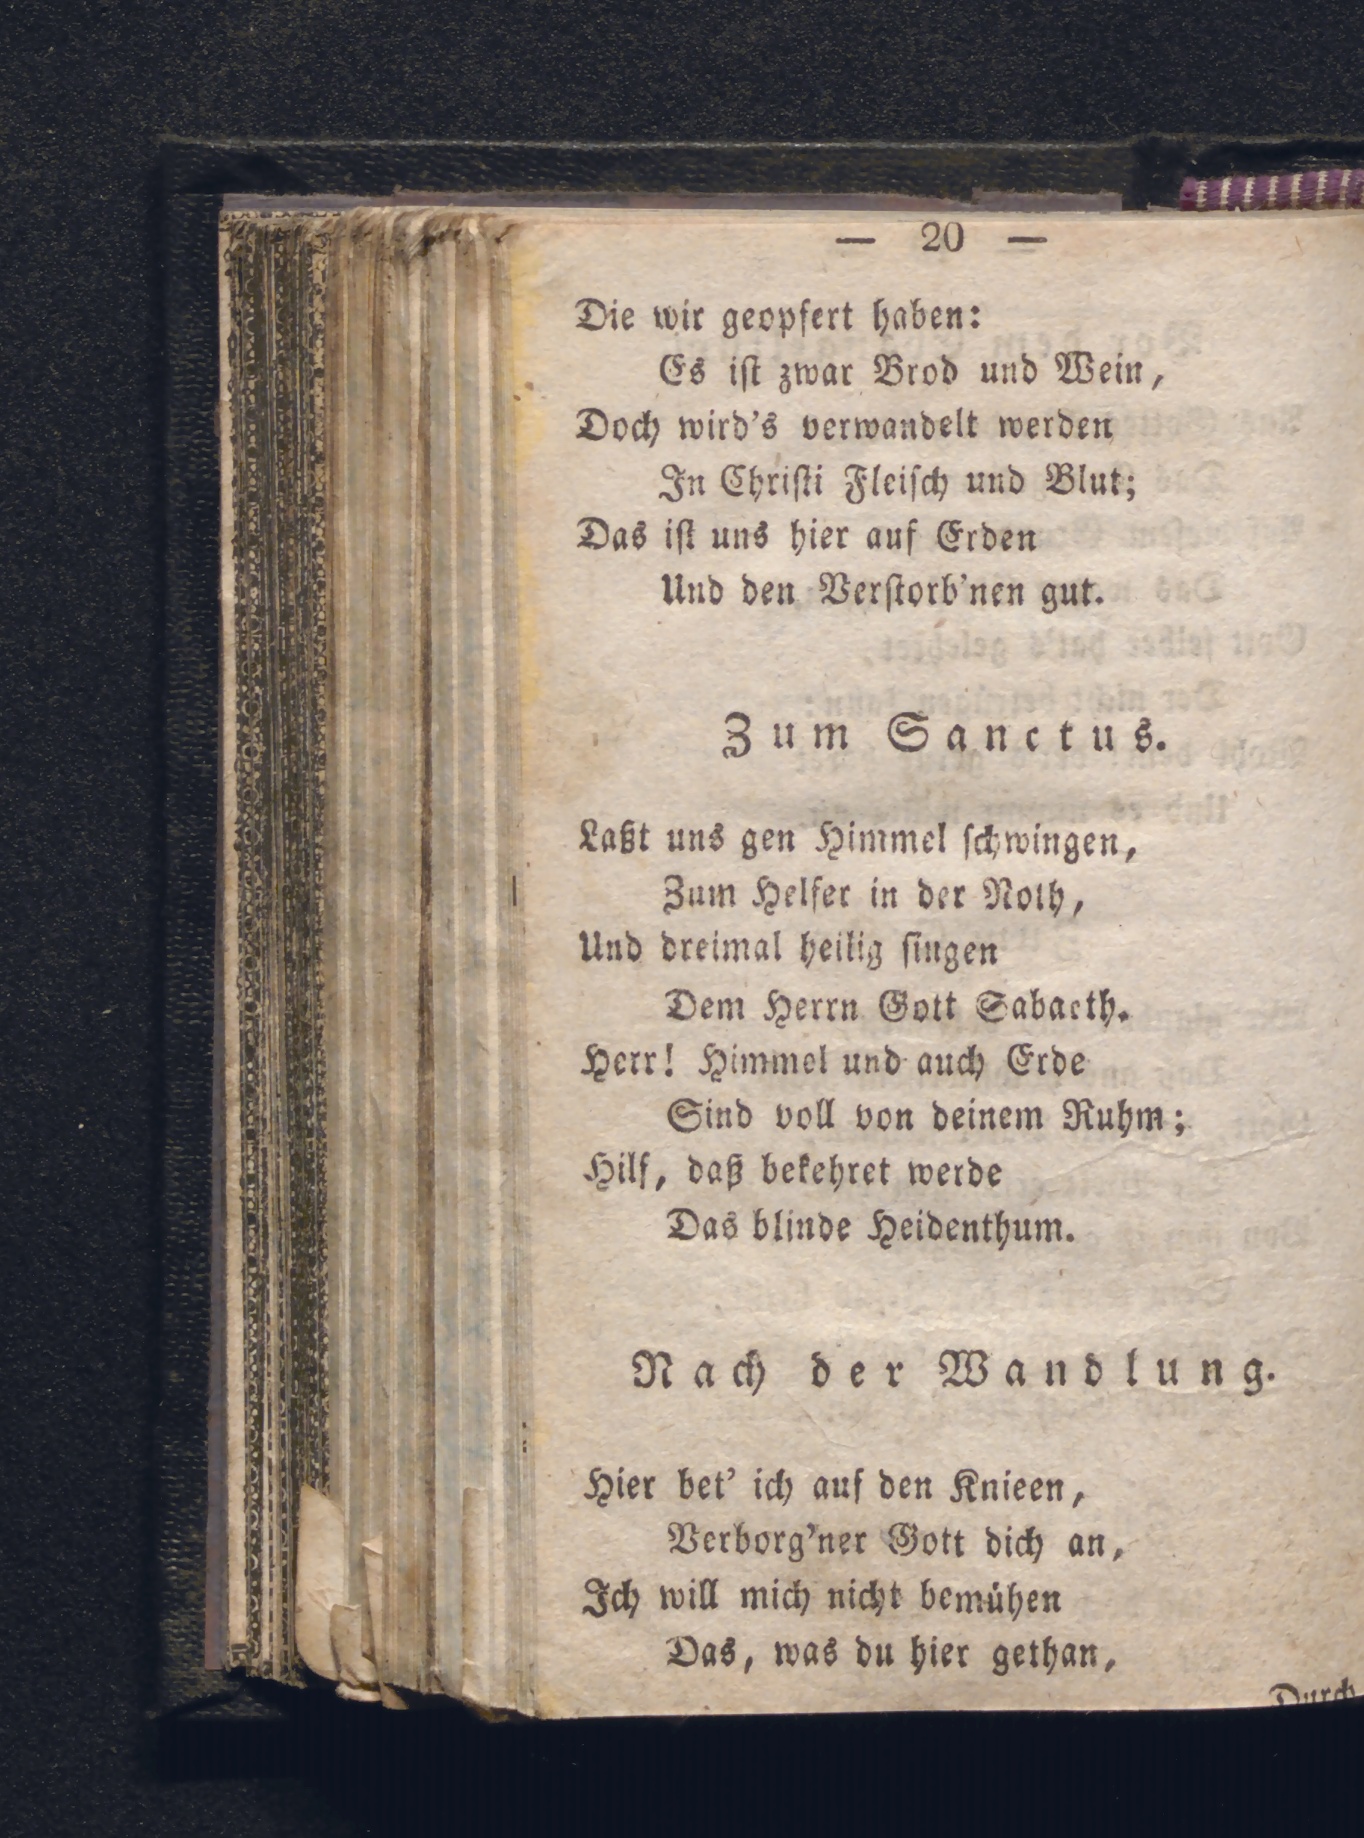 — 20 —
Die wir geopfert haben:
Es ist zwar Brod und Wein,
Doch wird's verwandelt werden
In Christi Fleisch und Blut;
Das ist uns hier auf Erden
Und den Verstorb'nen gut.
Zum Sanctus.
Laßt uns gen Himmel schwingen,
Zum Helfer in der Noth,
Und dreimal heilig singen
Dem Herrn Gott Sabaoth.
Herr! Himmel und auch Erde
Sind voll von deinem Ruhm;
Hilf, daß bekehret werde
Das blinde Heidenthum.
Nach der Wandlung.
Hier bet' ich auf den Knieen,
Verborg'ner Gott dich an,
Ich will mich nicht bemühen
Das, was du hier gethan,
Durch